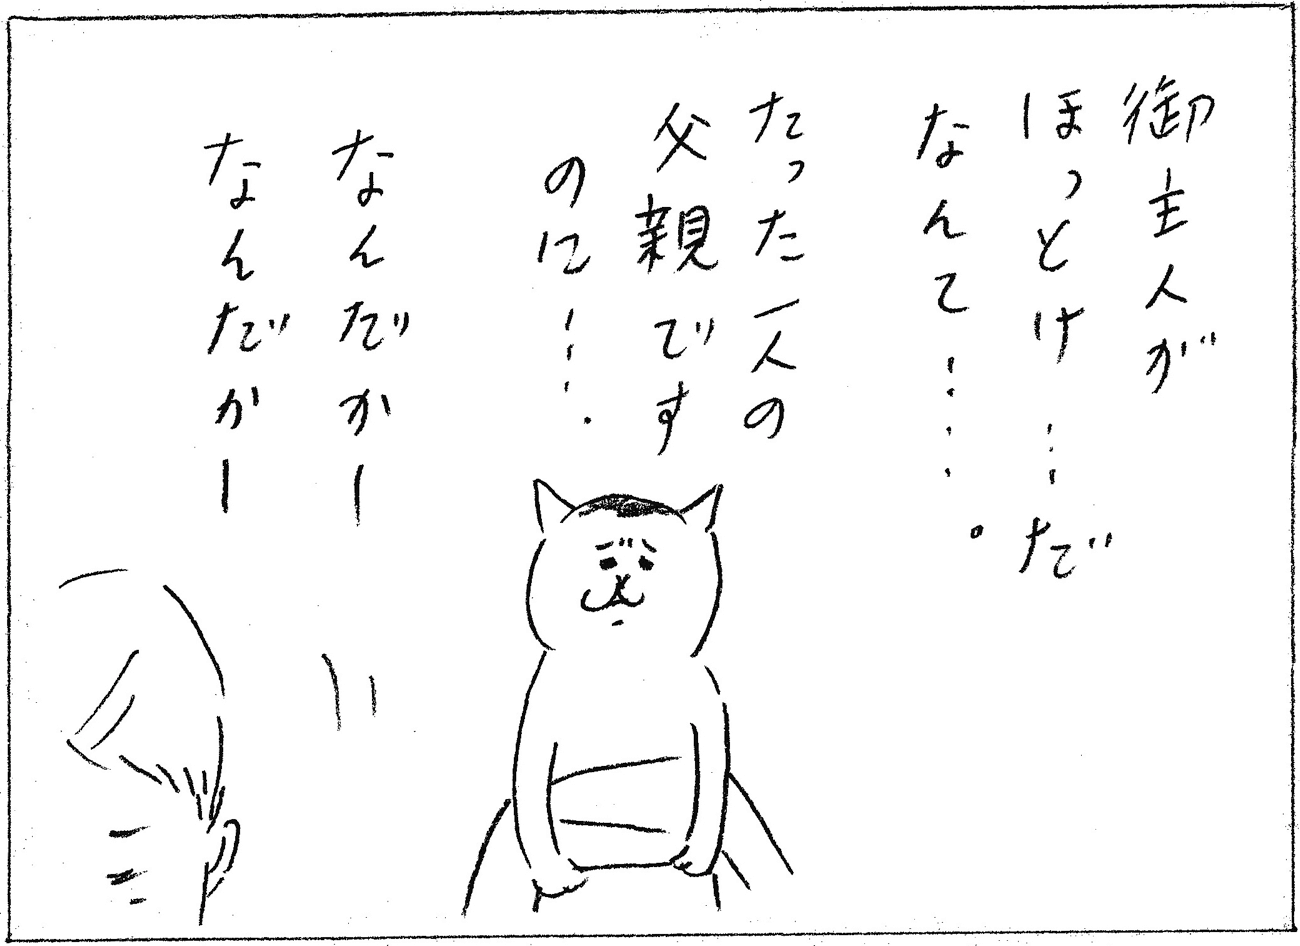 御主人が
ほっとけ…だ
なんて……。
たった一人の
父親です
のに…‥
なんだかー
なんだかー